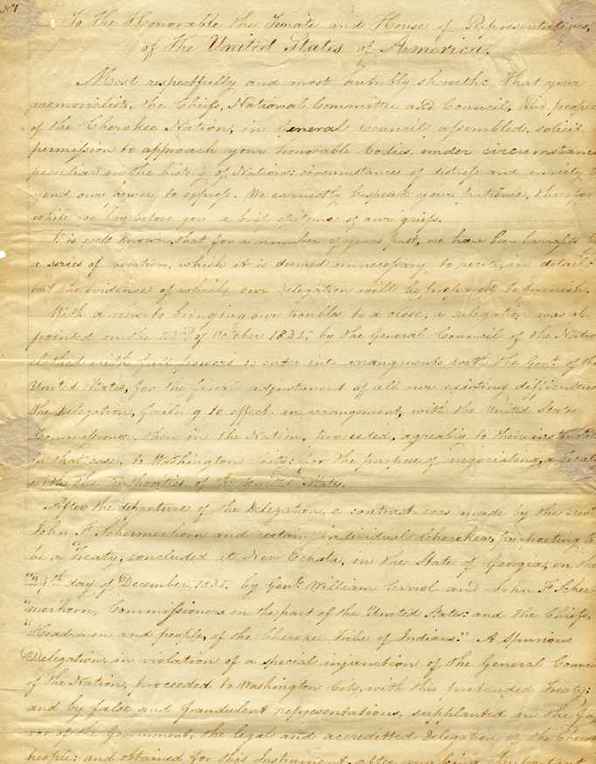 To the Honorable the Senate and House of Representatives,
of the United States of America.
Most respectfully and most humbly showeth: That your
memorialists, the Chiefs, National Committee and Council, and people
of the Cherokee Nation, in General Council assembled, solicit
permission to approach your honorable bodies, under circumstances
peculiar in the history of Nations; circumstances of distress and anxiety be-
yond our power to express. We earnestly bespeak your patience, therefore,
while we lay before you a brief of our griefs.
It is well known that for a number of years past, we have been
a series of vexation, which it is deemed unnecessary to recite in detail
but the evidence of which our delegation will be prepared to furnish.
With a view to bringing our troubles to a close, a delegation was ap
pointed on the 23rd of October 1835, by the General Council of the Nation
with full powers to enter into arrangements with the Govt. of the
United States, for the final adjustment of all our existing difficulties.
The Delegation, failing to effect an arrangement, with the United States
Commissioner, then in the Nation, proceeded, agreeably to their
in that case, to Washington City; for the purpose of negociating a
with the authorities of the United States.
After the departure of the Delegation, a contract was made by the Revd.
John F. Schermerhorn and certain individual Cherokees, purporting to
be a Treaty, concluded at New Echota, in the State of Georgia, on the
day of December 1835, by Genl. William Carrol and John F. Scher-
merhorn, Commissioners on the part of the United States: and the Chiefs,
Headmen and people, of the Cherokee tribe of Indians." A Spurious
Delegation, in violation of a special injunction of the General Council
of the Nation, proceeded to Washington City, with this pretended Treaty;
and by false and fraudulent representations, supplanted in the fa-
vor of the Government, the legal and accredited Delegation of the Cherokee
people; and obtained for this Instrument, after making important